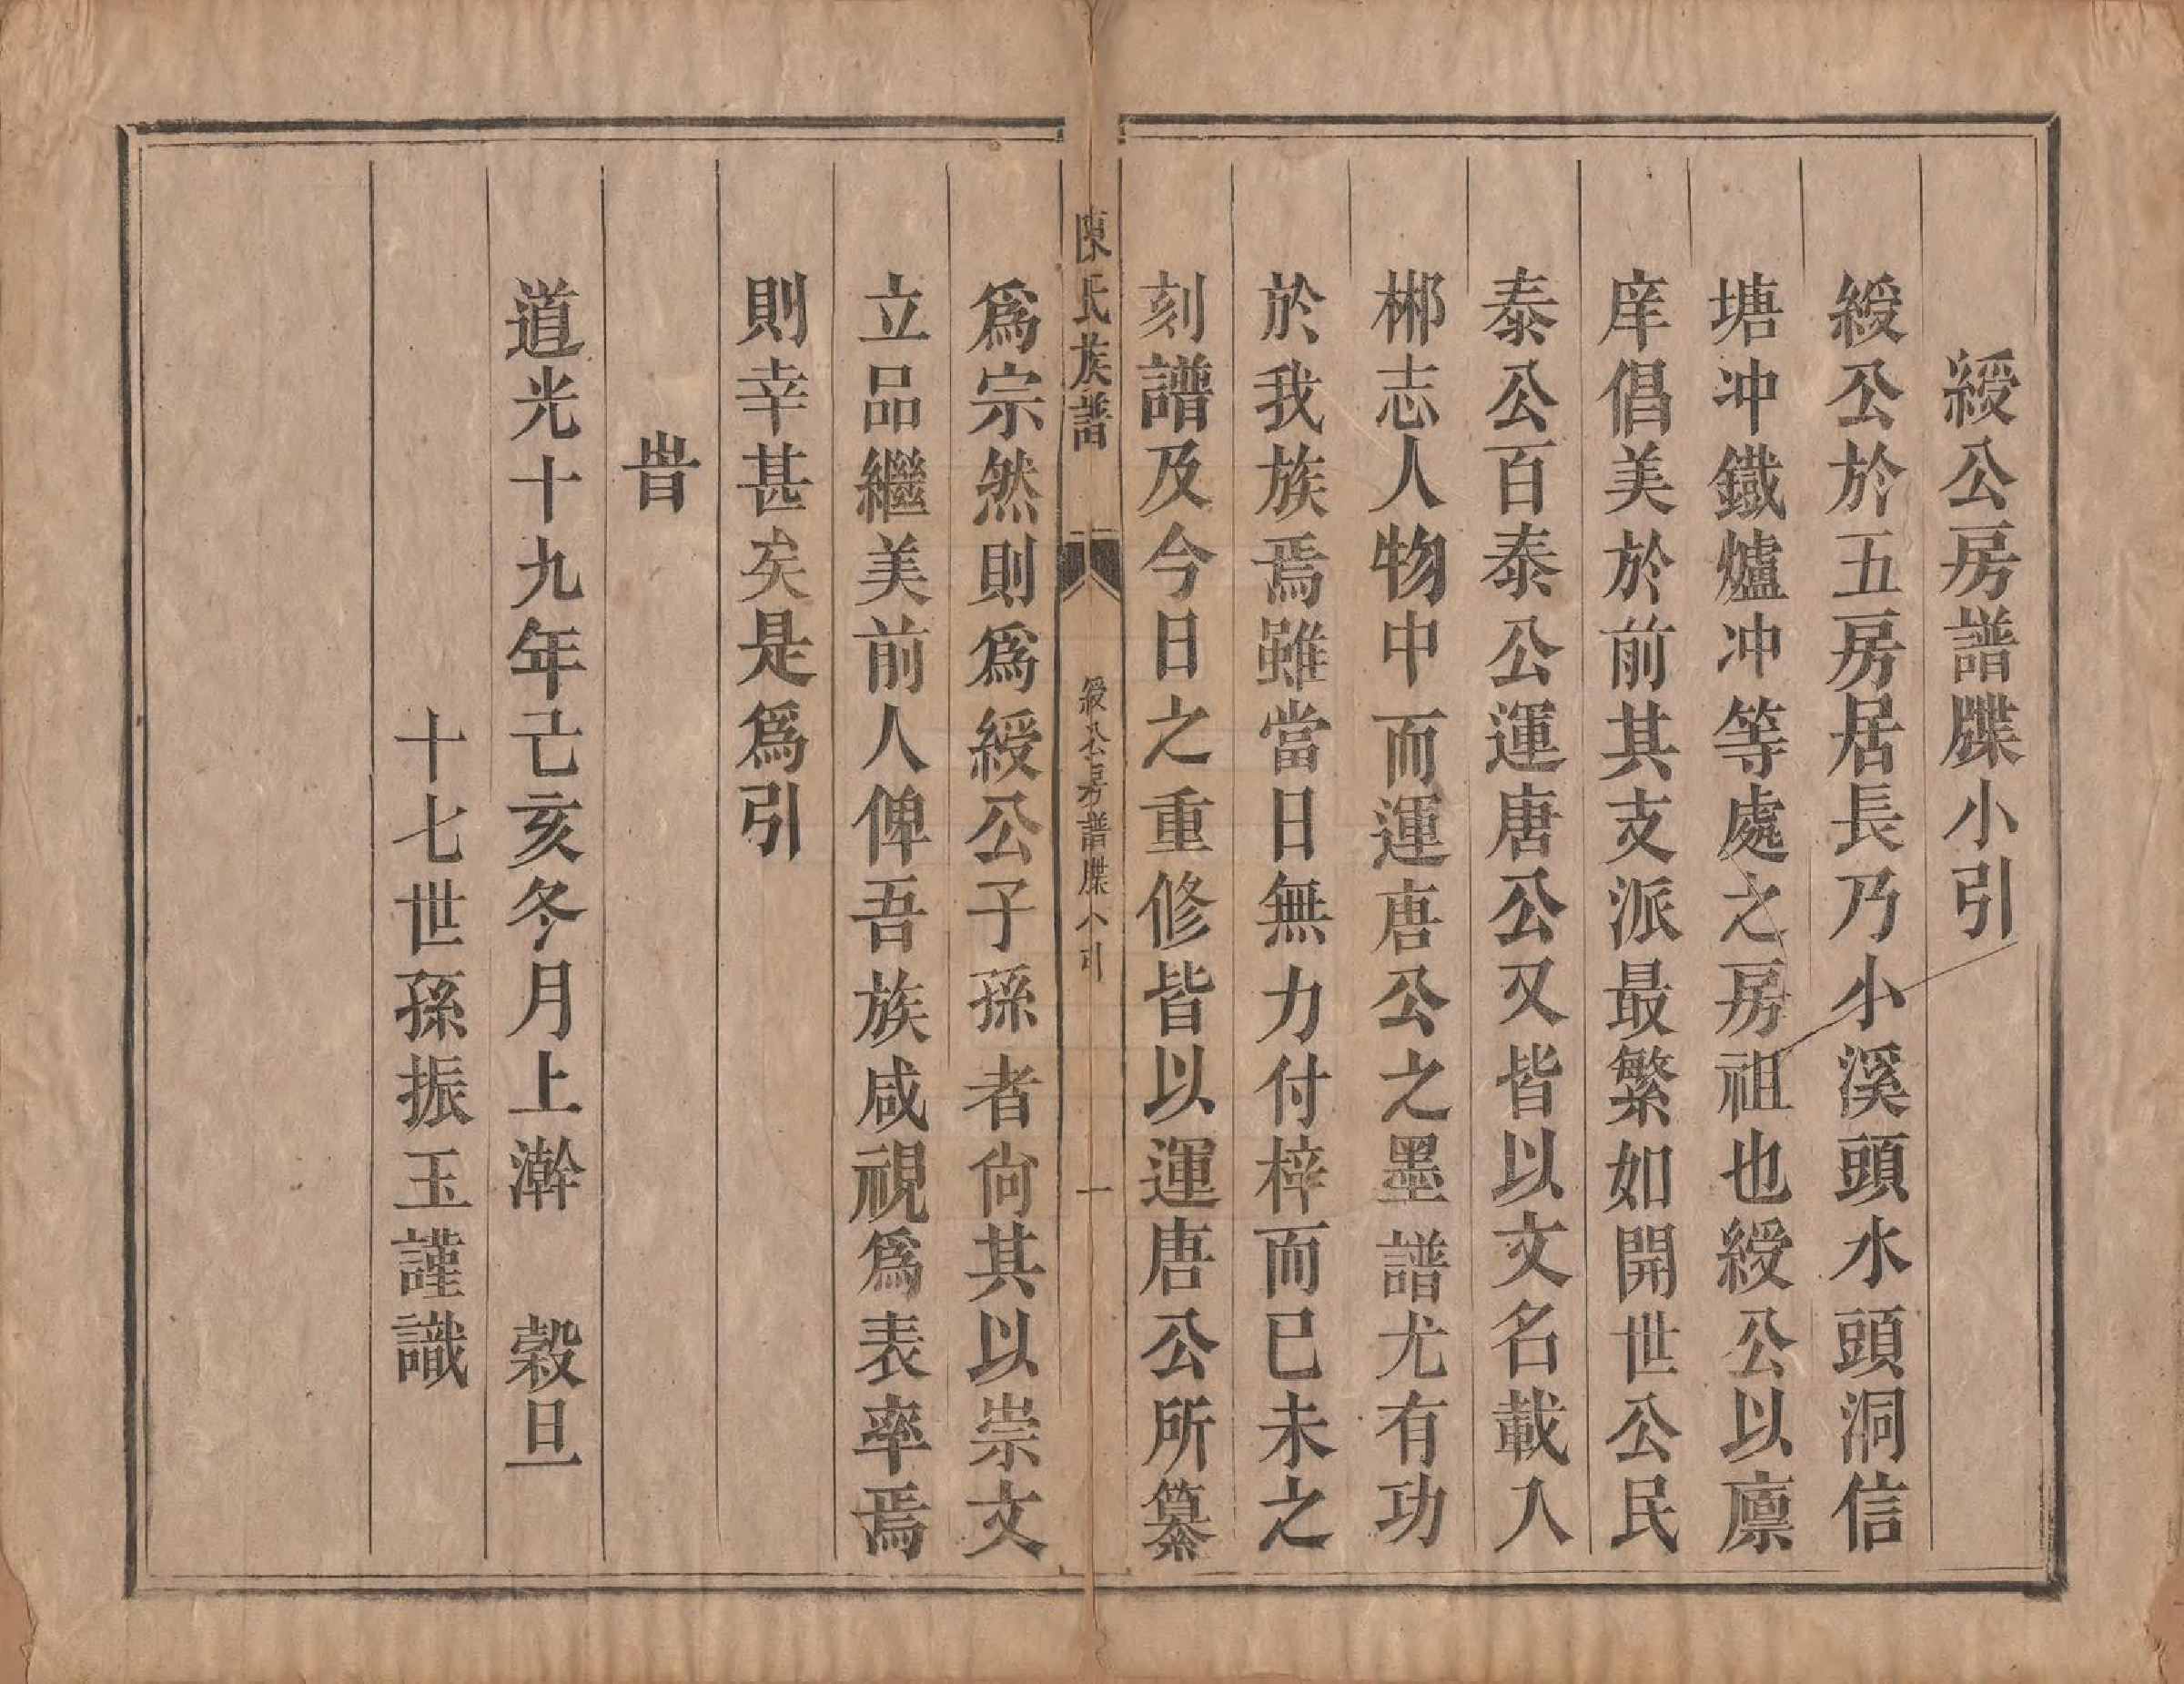 綬公房譜牒小引
綬公於五房居長乃小溪頭水頭洞信
塘冲鐵爐冲等處之房祖也綬公以廪
庠倡美於前其支派最繁如開世公民
泰公百泰公運唐公又皆以文名載入
郴志人物中而運唐公之墨譜尤有功
於我族焉雖當日無力付梓而已未之
刻譜及今日之重修皆以運唐公所纂
陳氏族譜
綬公房譜牒小引
一
爲宗然則爲綬公子孫者尙其以崇文
立品繼美前人俾吾族咸視爲表率焉
則幸甚矣是爲引
旹
道光十九年己亥冬月上澣 穀旦
十七世孫振玉謹識